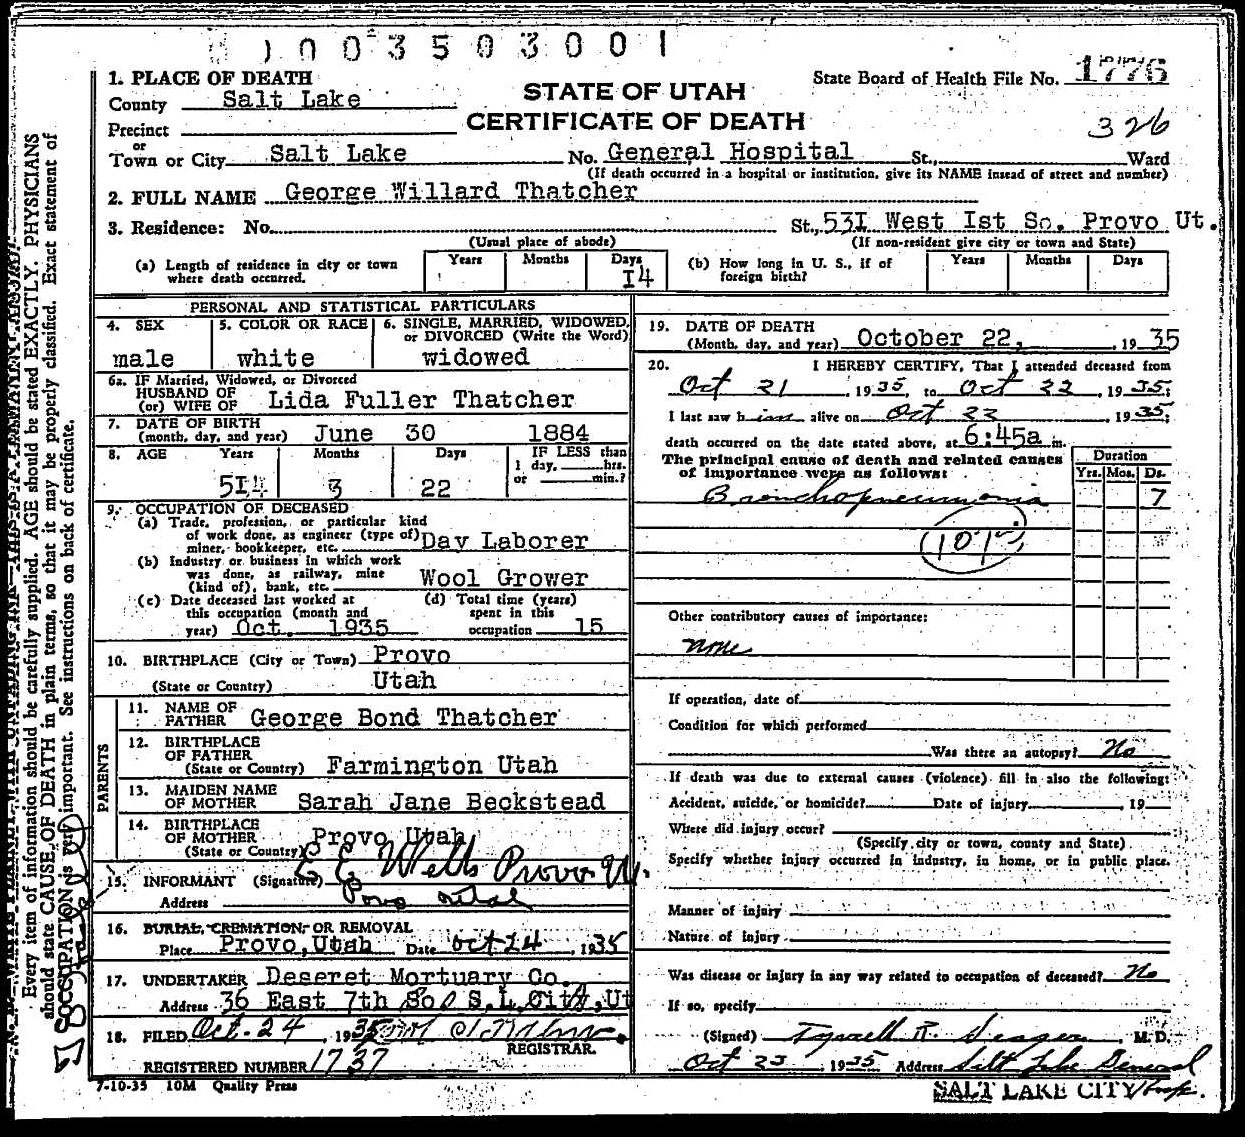 1003503001
1. PLACE OF DEATH
County Salt Lake
STATE OF UTAH
State Board of Health File No. 1776
Precinct
CERTIFICATE OF DEATH
326
or
Town or City Salt Lake No. General Hospital St., Ward
(If death occurred in a hospital or institution, give its NAME insead of street and number)
2. FULL NAME George Willard Thatcher
3. Residence: No. St., 53I West Ist So. Provo Ut.
(Usual place of abode) (If non-resident give city or town and State)
(a) Length of residence in city or town where death occurred. Years Months Days I4
(b) How long in U. S., if of foreign birth? Years Months Days
PERSONAL AND STATISTICAL PARTICULARS
4. SEX male
5. COLOR OR RACE white
6. SINGLE, MARRIED, WIDOWED, or DIVORCED (Write the Word) widowed
6a. IF Married, Widowed, or Divorced
HUSBAND OF
(or) WIFE OF Lida Fuller Thatcher
7. DATE OF BIRTH
(month, day, and year) June 30 1884
8. AGE Years Months Days IF LESS than
1 day, hrs.
or min.?
51 3 22
9. OCCUPATION OF DECEASED
(a) Trade, profession, or particular kind
of work done, as engineer (type of)
miner, bookkeeper, etc. Day Laborer
(b) Industry or business in which work
was done, as railway, mine
(kind of), bank, etc. Wool Grower
(c) Date deceased last worked at
this occupation (month and
year) Oct. 1935
(d) Total time (years)
spent in this
occupation 15
10. BIRTHPLACE (City or Town) Provo
(State or Country) Utah
PARENTS
11. NAME OF
FATHER George Bond Thatcher
12. BIRTHPLACE
OF FATHER
(State or Country) Farmington Utah
13. MAIDEN NAME
OF MOTHER Sarah Jane Beckstead
14. BIRTHPLACE
OF MOTHER
(State or Country) Provo Utah
15. INFORMANT (Signature) E E Wells Provo U.
Address Provo Utah
16. BURIAL, CREMATION, OR REMOVAL
Place Provo, Utah Date Oct 24, 1935
17. UNDERTAKER Deseret Mortuary Co.
Address 36 East 7th So S.L.City, Ut
18. FILED Oct. 24 1935
REGISTRAR.
REGISTERED NUMBER 1737
7-10-35 10M Quality Press
19. DATE OF DEATH
(Month, day, and year) October 22, , 1935
20. I HEREBY CERTIFY, That I attended deceased from
Oct 21, 1935, to Oct 22, 1935;
I last saw him alive on Oct 22 1935;
death occurred on the date stated above, at 6:45a m.
The principal cause of death and related causes
of importance were as follows:
Duration
Yrs. Mos. Ds.
Bronchopneumonia 7
Other contributory causes of importance:
none
If operation, date of
Condition for which performed
Was there an autopsy? No
If death was due to external causes (violence) fill in also the following:
Accident, suicide, or homicide? Date of injury , 19
Where did injury occur?
(Specify city or town, county and State)
Specify whether injury occurred in industry, in home, or in public place.
Manner of injury
Nature of injury
Was disease or injury in any way related to occupation of deceased? No
If so, specify
(Signed) R. M. D.
Oct 23 1935 Address Salt Lake General
SALT LAKE CITY Hosp.
Every item of information should be carefully supplied. AGE should be stated EXACTLY. PHYSICIANS
should state CAUSE OF DEATH in plain terms, so that it may be properly classified. Exact statement of
OCCUPATION is very important. See instructions on back of certificate.